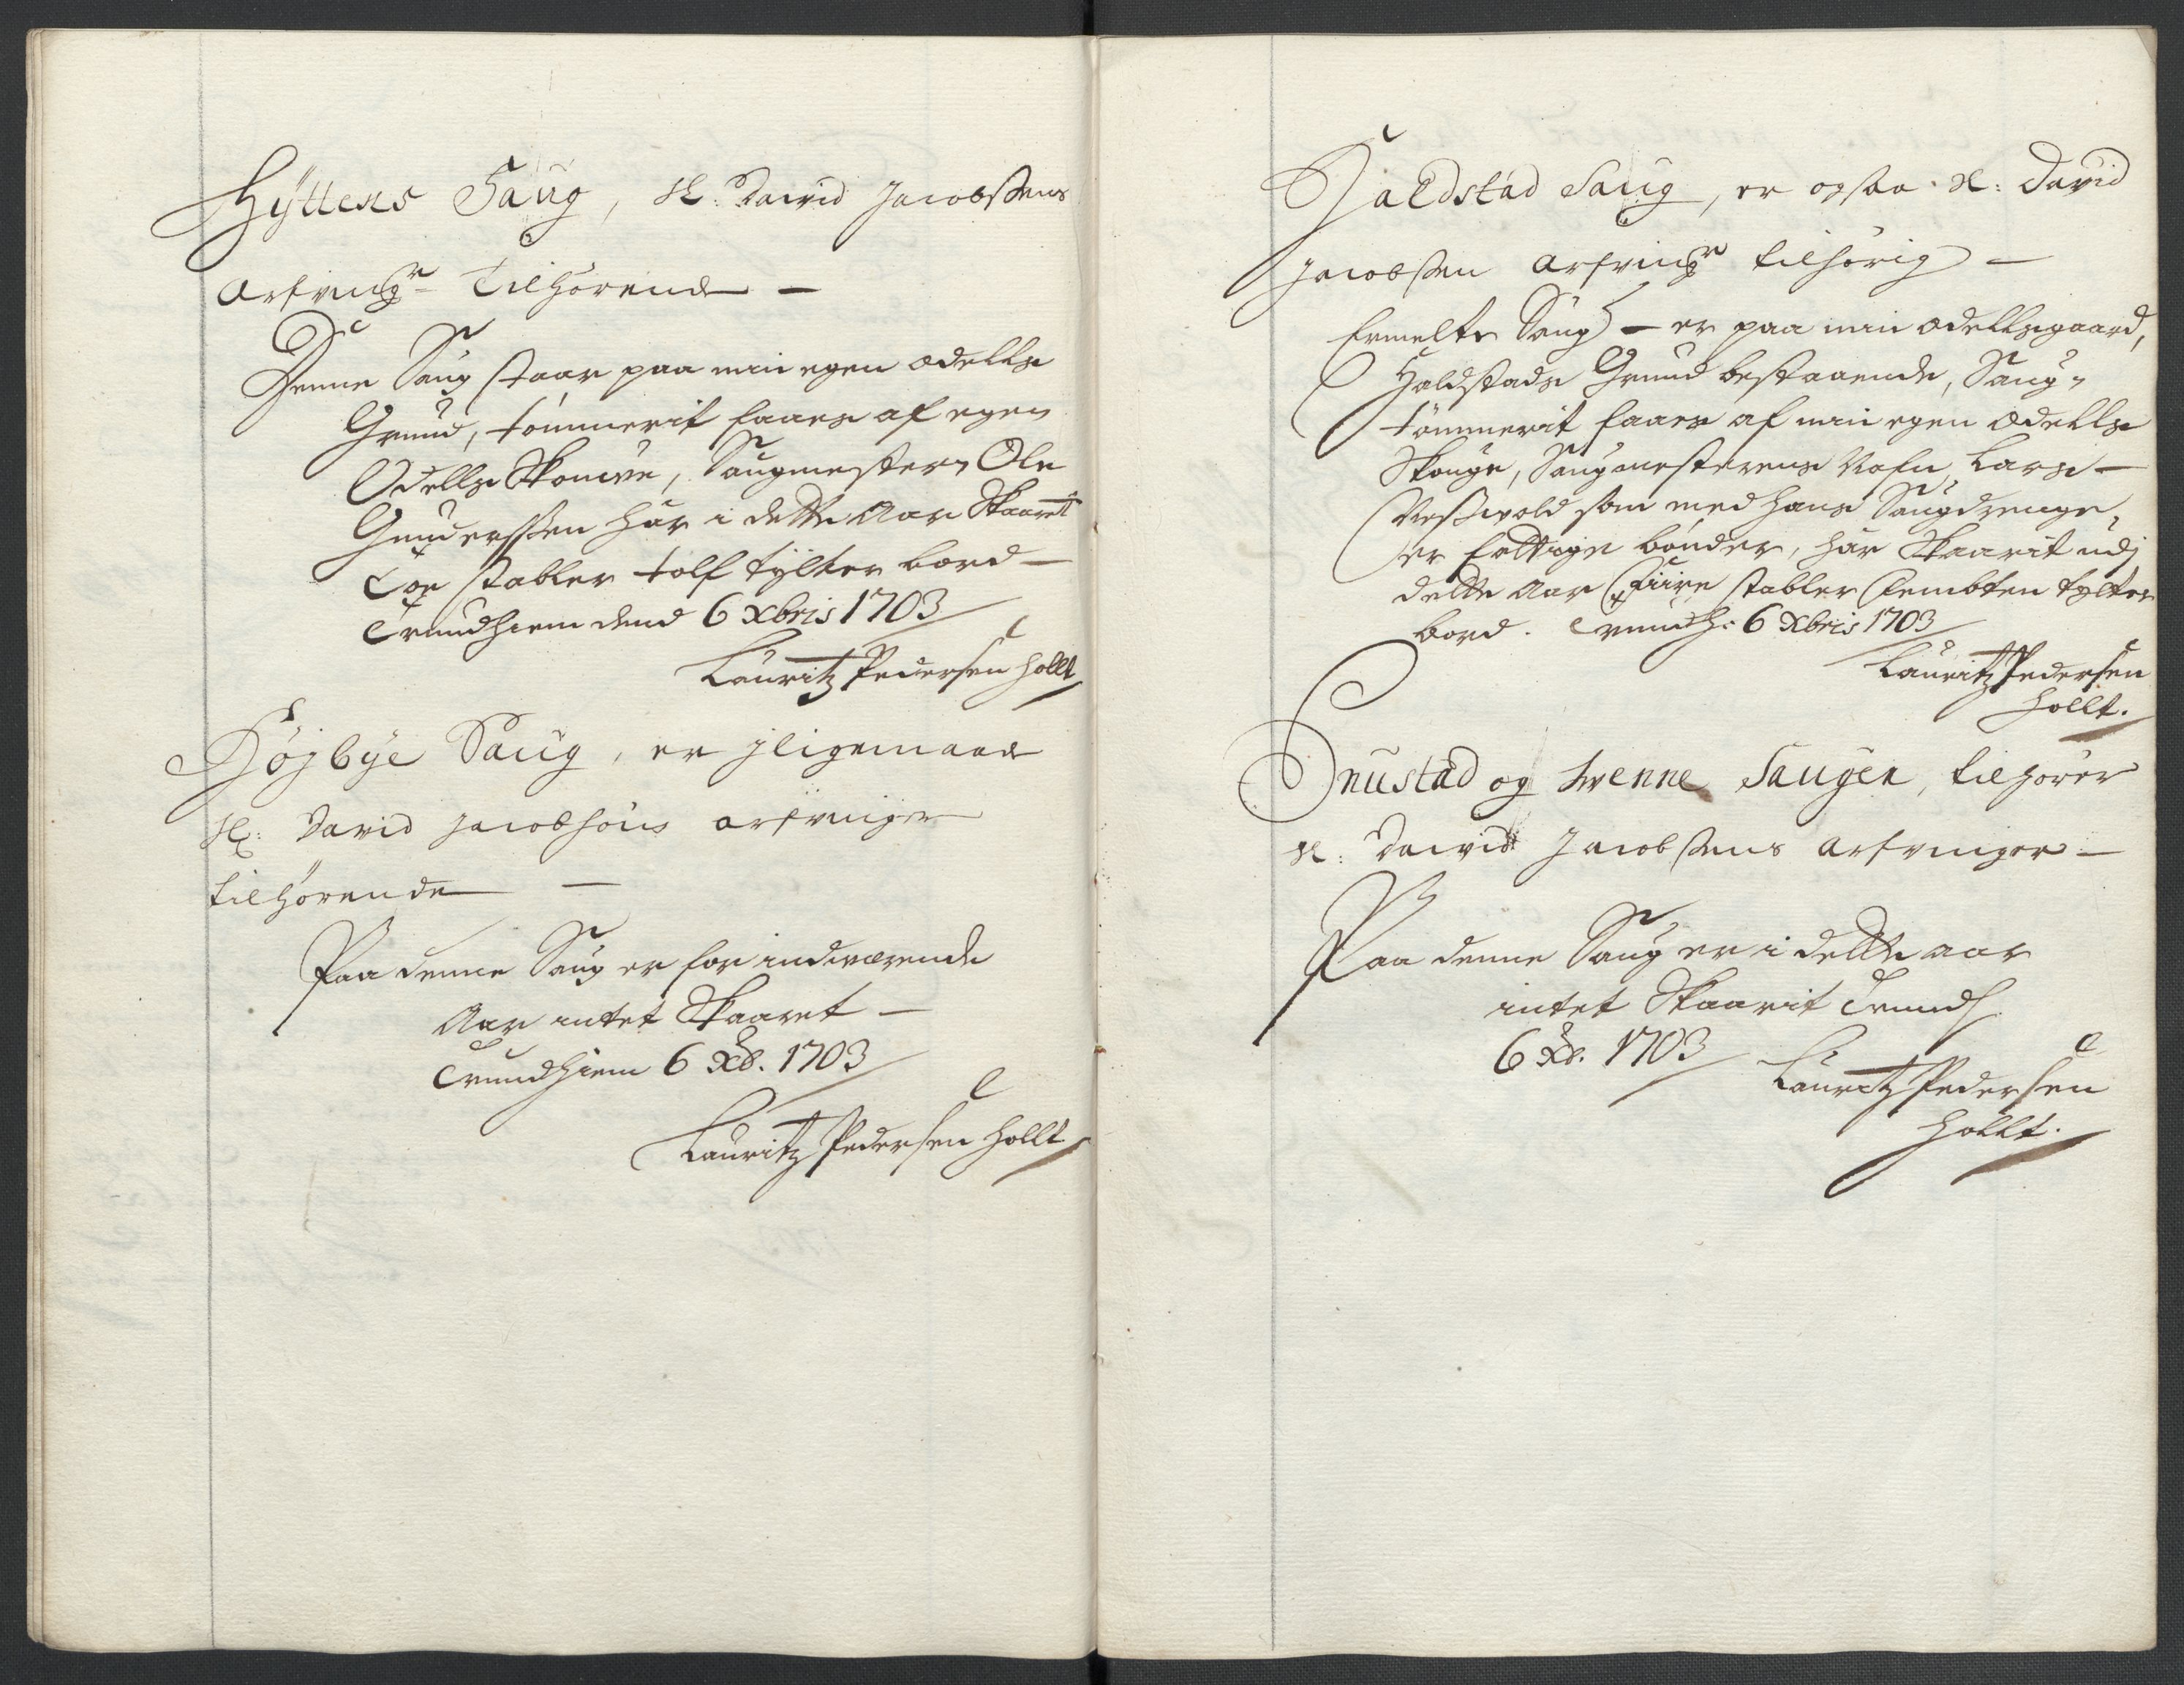 Hyttens Saug, Sl: David Jacobsens
Arfvinger Tilhørende —
Denne Saug staar paa min egen odells
Grund, tømmerit faaes af egen
Odells Skouve, Saugmester Ole
Gunderssen har i dette Aar Skaaret
Toe stabler tolf tylter bord —
Trundhiem dend 6 Xbris 1703
Lauritz Pedersen Hollt
Højbye Saug, er jligemaade
Sl: David Jacobsøns arfvinger
tilhørende —
Paa denne Saug er for indeværende
Aar intet Skaaret —
Trundhiem 6 Xb. 1703
Lauritz Pedersen Hollt
Haldstad Saug, er ogsaa Sl: David
Jacobssen Arfvinger tilhørig —
Ermelte Saug — er paa min odellsgaard,
Haldstads Grund bestaaende, Saug-
tømmerit faaes af min egen odells
Skouge, Saugmesterens Nafn, Lars —
som med hans Saugdrenge,
er fattige bønder, har Skaarit udj
dette Aar Fiire stabler Fembten tylter
bord. Trundh: 6 Xbris 1703
Lauritz Pedersen
Hollt.
Snustad og Svenne Saugen, tilhører
Sl: David Jacobssens Arfvinger —
Paa denne Saug er i dette aar
intet Skaarit Trundh
6 Xb. 1703
Lauritz Pedersen
Hollt.